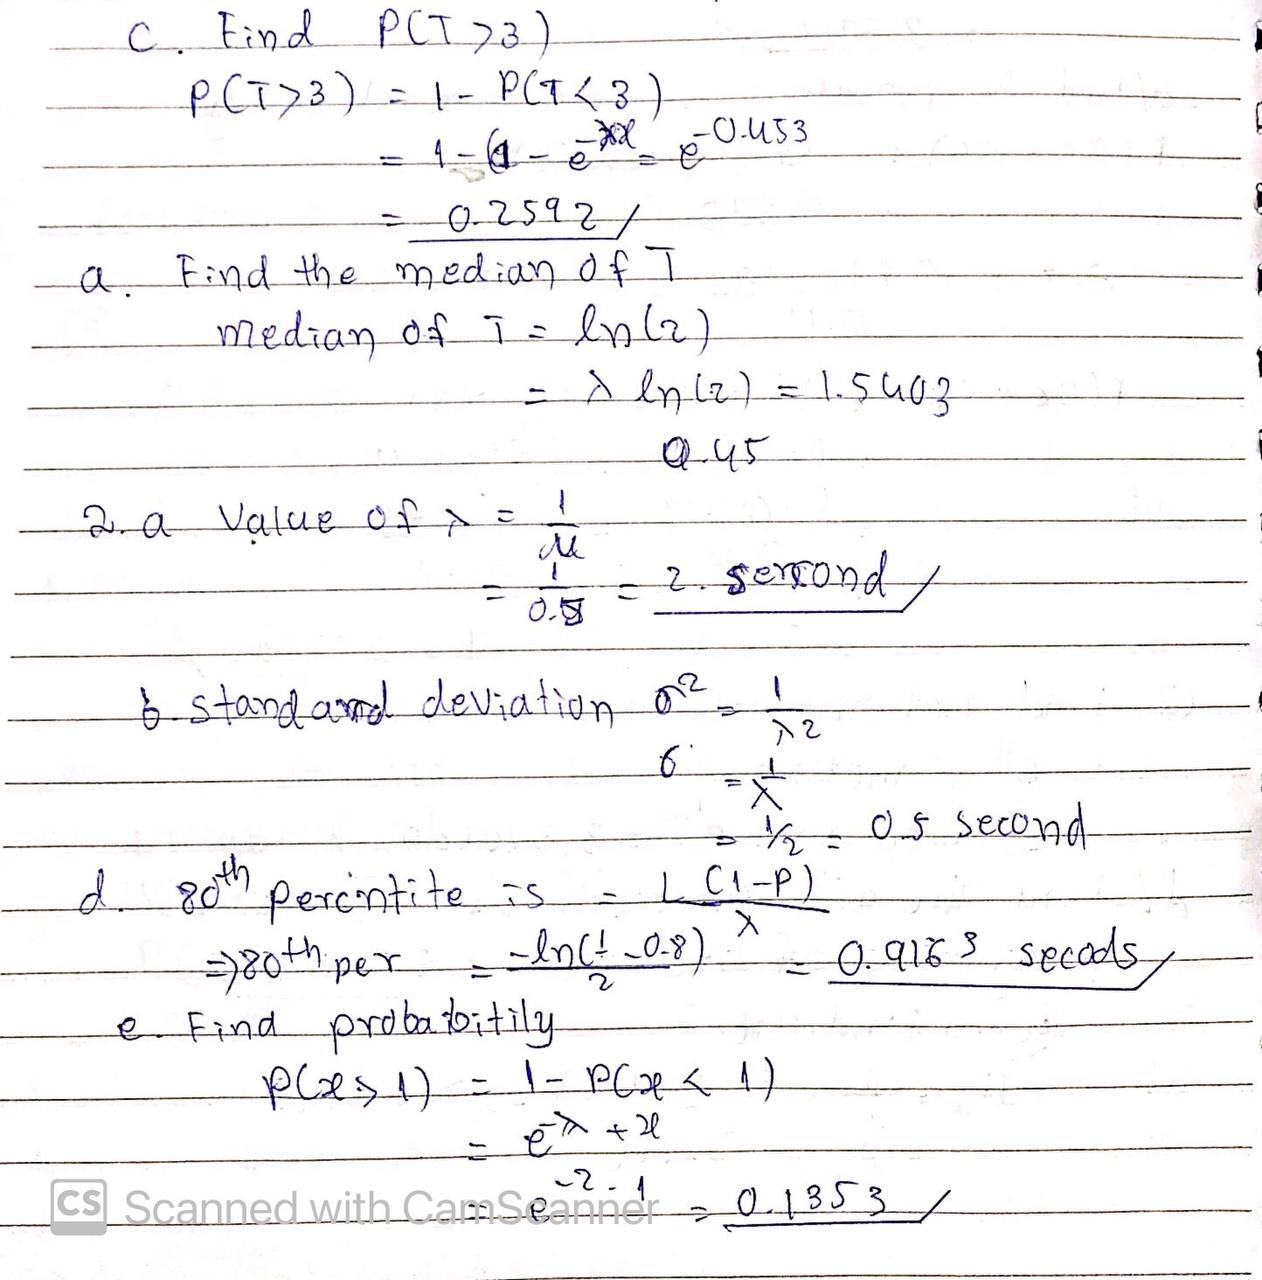 c. Find P(T>3)
P(T>3) = 1 - P(T<3)
= 1 - (1 - e^-λx = e^-0.453
= 0.2592
a. Find the median of T
median of T = ln(2)
= λ ln(2) = 1.5403
0.45
2. a Value of λ = 1/μ
= 1/0.5 = 2. second
b. standard deviation σ² = 1/λ²
σ = 1/λ
= 1/2 = 0.5 second
d. 80th percintite is = L(1-P)/λ
⇒ 80th per = -ln(1-0.8)/2 = 0.9163 secods
e. Find probabitily
P(x≥1) = 1 - P(x < 1)
= e^-λ + x
= e^-2.1 = 0.1353
CS Scanned with CamScanner